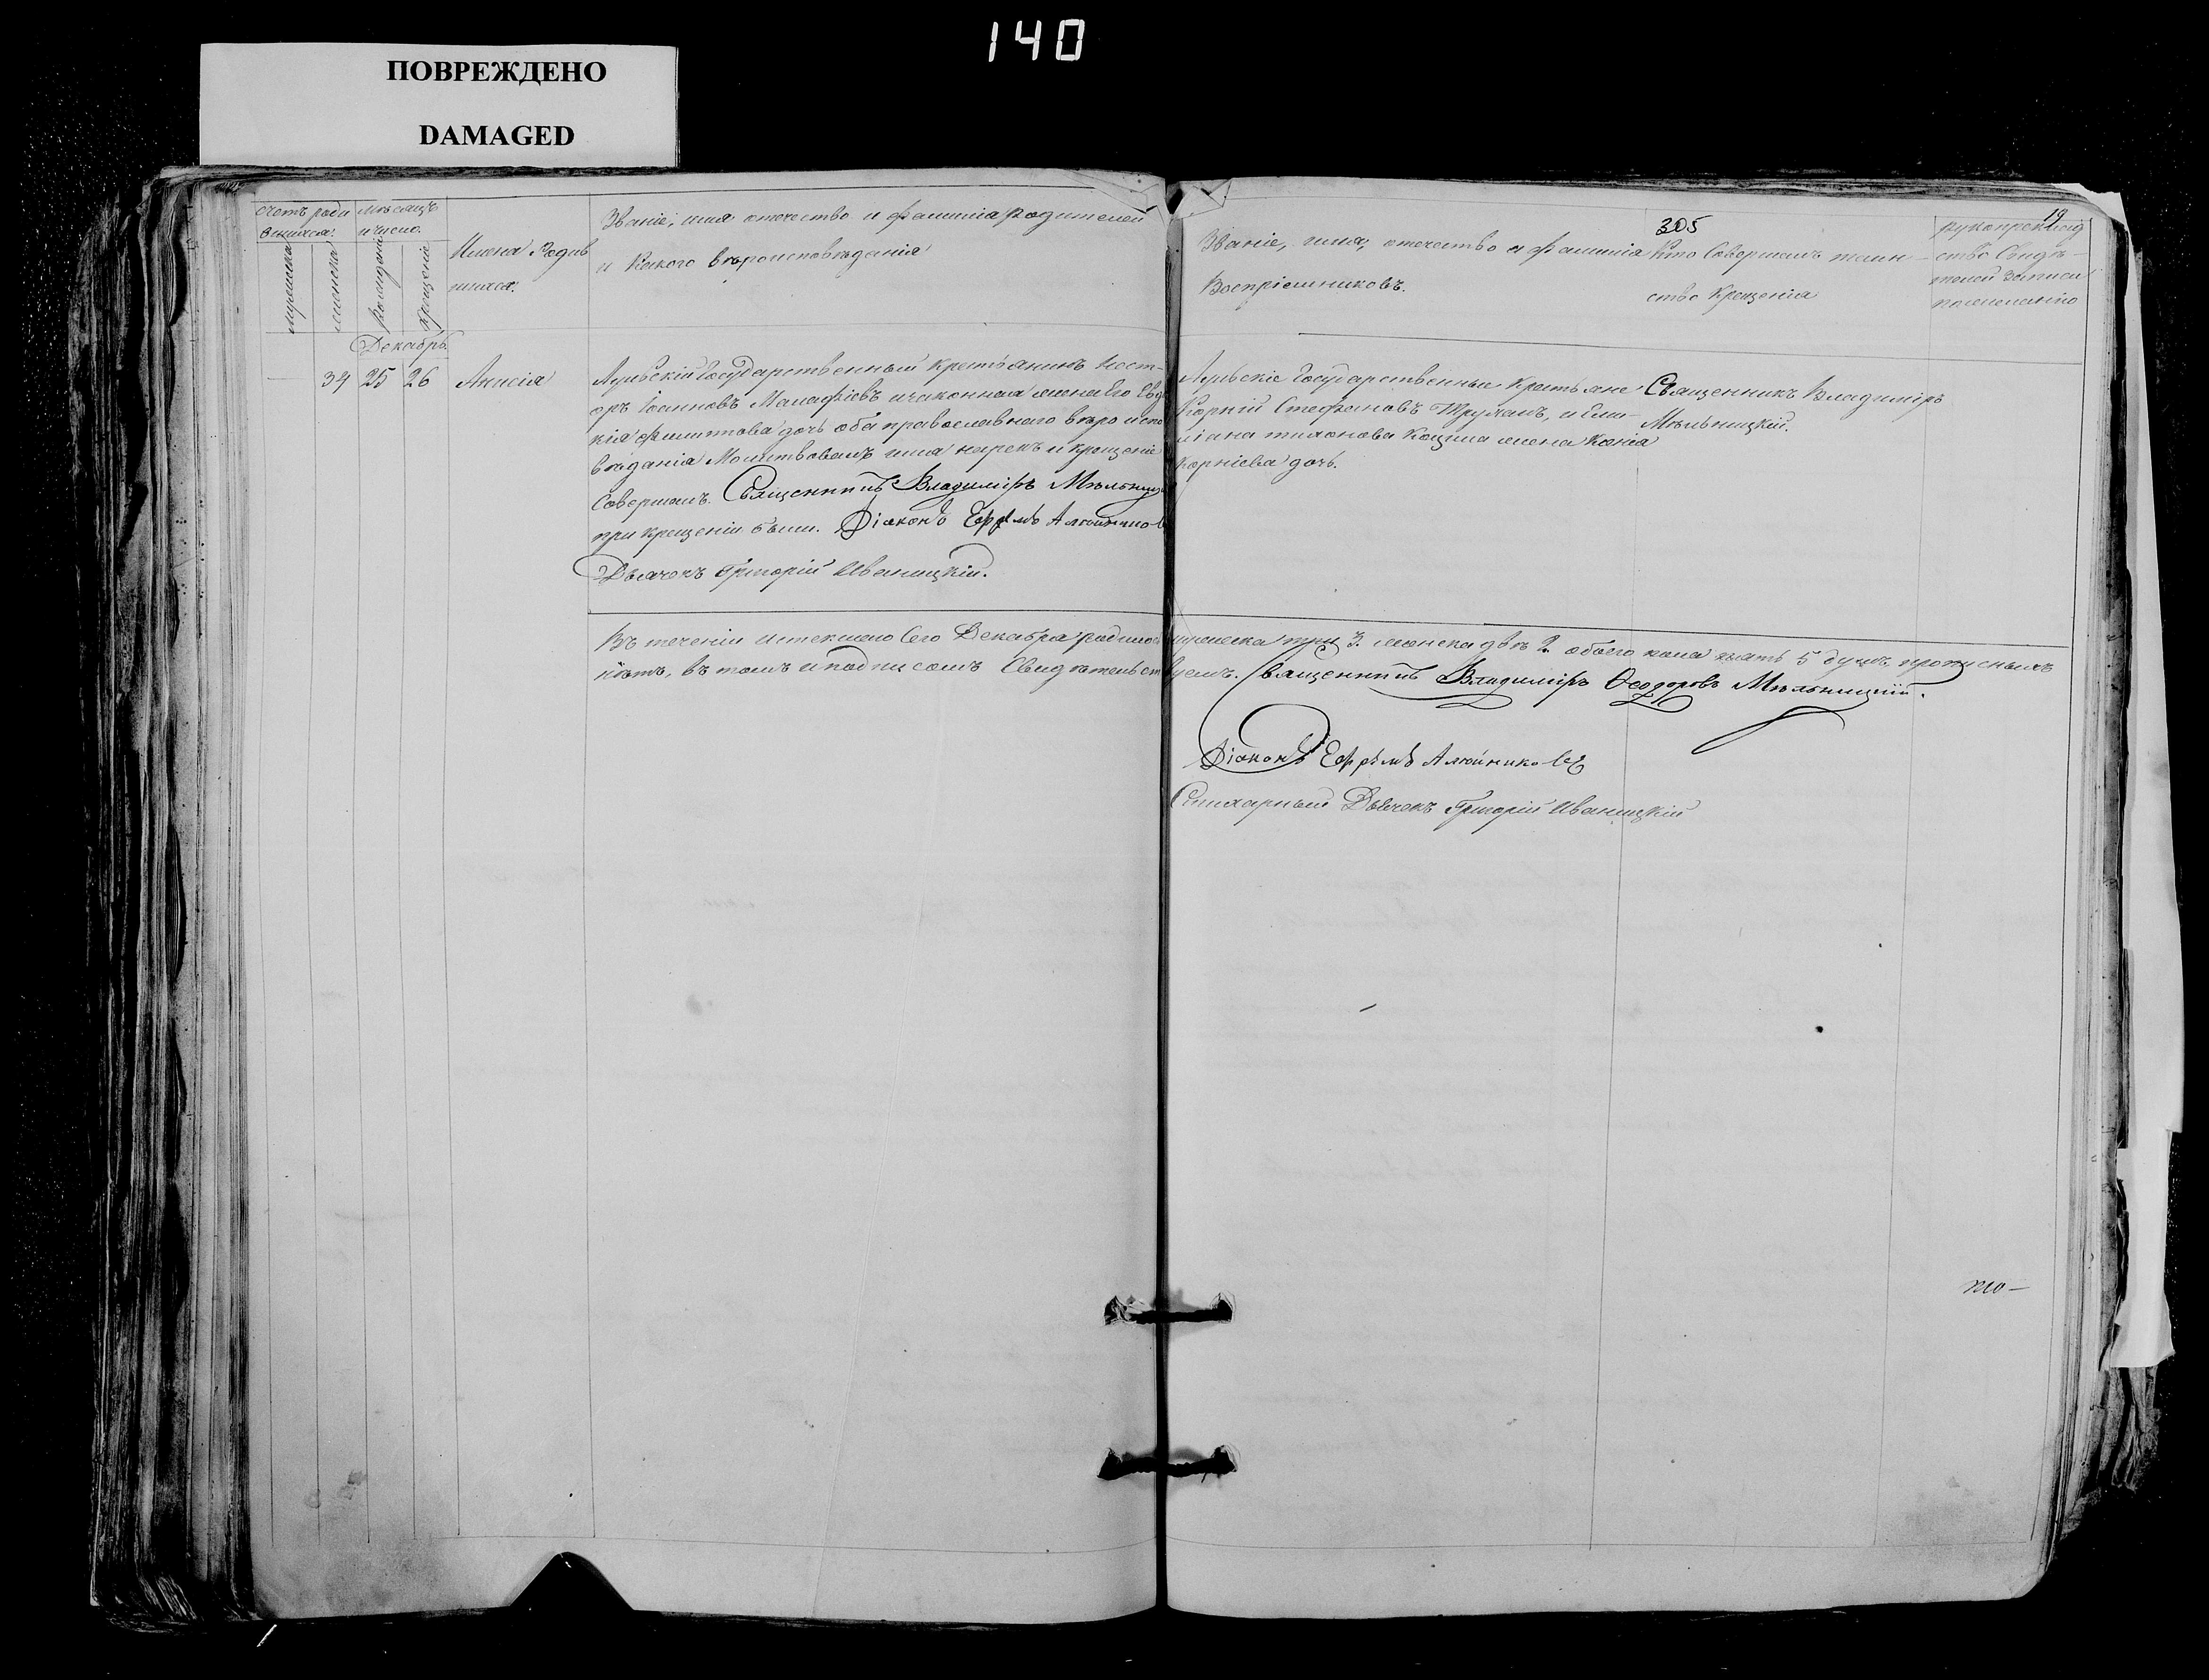 140
ПОВРЕЖДЕНО
DAMAGED
19
305
Счетъ роди
вшихся.
мѣсяцъ
и число.
мужеска
женска
рожденія
крещенія
Имена Родив
шихся.
Званіе, имя отечество и фамилія родителей
и Какого вѣроисповѣданія
Званіе, имя, отечество и фамилія
Воспріемниковъ.
Кто Совершалъ таин-
ство Крещенія
рукоприклад
ство Свидѣ-
телей записи
по желанію
Декабрь.
34 25 26 Анисія
Государственный крестьянинъ Нест-
оръ Іоанновъ Малафіевъ и законная жена Его Евдо
кія Филиппова дочь оба православнаго вѣро испо
вѣданія Молитвовалъ имя нарекъ и крещеніе
Совершалъ. Священникъ Владиміръ Мѣльниц
при крещеніи были. Діаконъ Ефремъ Алюйнико
Дьячекъ Григорій Иваницкій.
Государственные Крестьяне
Корній Стефановъ и Ели-
жена
Корніева дочь.
Священникъ Владиміръ
Мѣльницкій.
Въ теченіи истекшего Сего Декабря родилось мужеска три 3. женска двѣ 2. обоего пола пять 5 душъ, пропускныхъ
нѣтъ, въ томъ и подписомъ Свидѣтельствуемъ. Священникъ Владиміръ Ѳеодоровъ Мѣльницкій.
Діаконъ Ефремъ Алюйниковъ
Стихарный Дьячекъ Григорій Иваницкій
по-